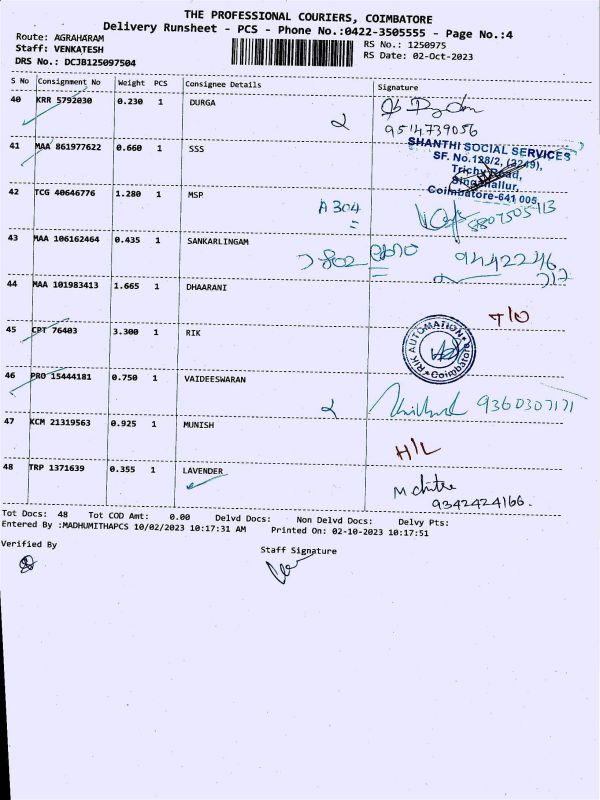 THE PROFESSIONAL COURIERS, COIMBATORE
Delivery Runsheet - PCS - Phone No.:0422-3505555 - Page No.:4
Route: AGRAHARAM
Staff: VENKATESH
DRS No.: DCJB125097504
RS No.: 1250975
RS Date: 02-Oct-2023
S No Consignment No Weight PCS Consignee Details Signature
40 KRR 5792030 0.230 1 DURGA
9514739056
41 MAA 861977622 0.660 1 SSS
SHANTHI SOCIAL SERVICES
SF. No.128/2, (3249),
Trichy Road,
Singanallur,
Coimbatore-641 005
42 TCG 40646776 1.280 1 MSP
A 304
8807505713
43 MAA 106162464 0.435 1 SANKARLINGAM
9442246
717
44 MAA 101983413 1.665 1 DHAARANI
T/O
45 CPT 76403 3.300 1 RIK
RIK AUTOMATION
Coimbatore
46 PRO 15444181 0.750 1 VAIDEESWARAN
9360307171
47 KCM 21319563 0.925 1 MUNISH
H/L
48 TRP 1371639 0.355 1 LAVENDER
M chitra
9342424166.
Tot Docs: 48 Tot COD Amt: 0.00 Delvd Docs: Non Delvd Docs: Delvy Pts:
Entered By :MADHUMITHAPCS 10/02/2023 10:17:31 AM Printed On: 02-10-2023 10:17:51
Verified By
Staff Signature